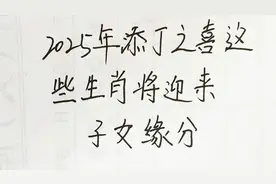 2025年添丁之喜这
些生肖将迎来
子女缘分